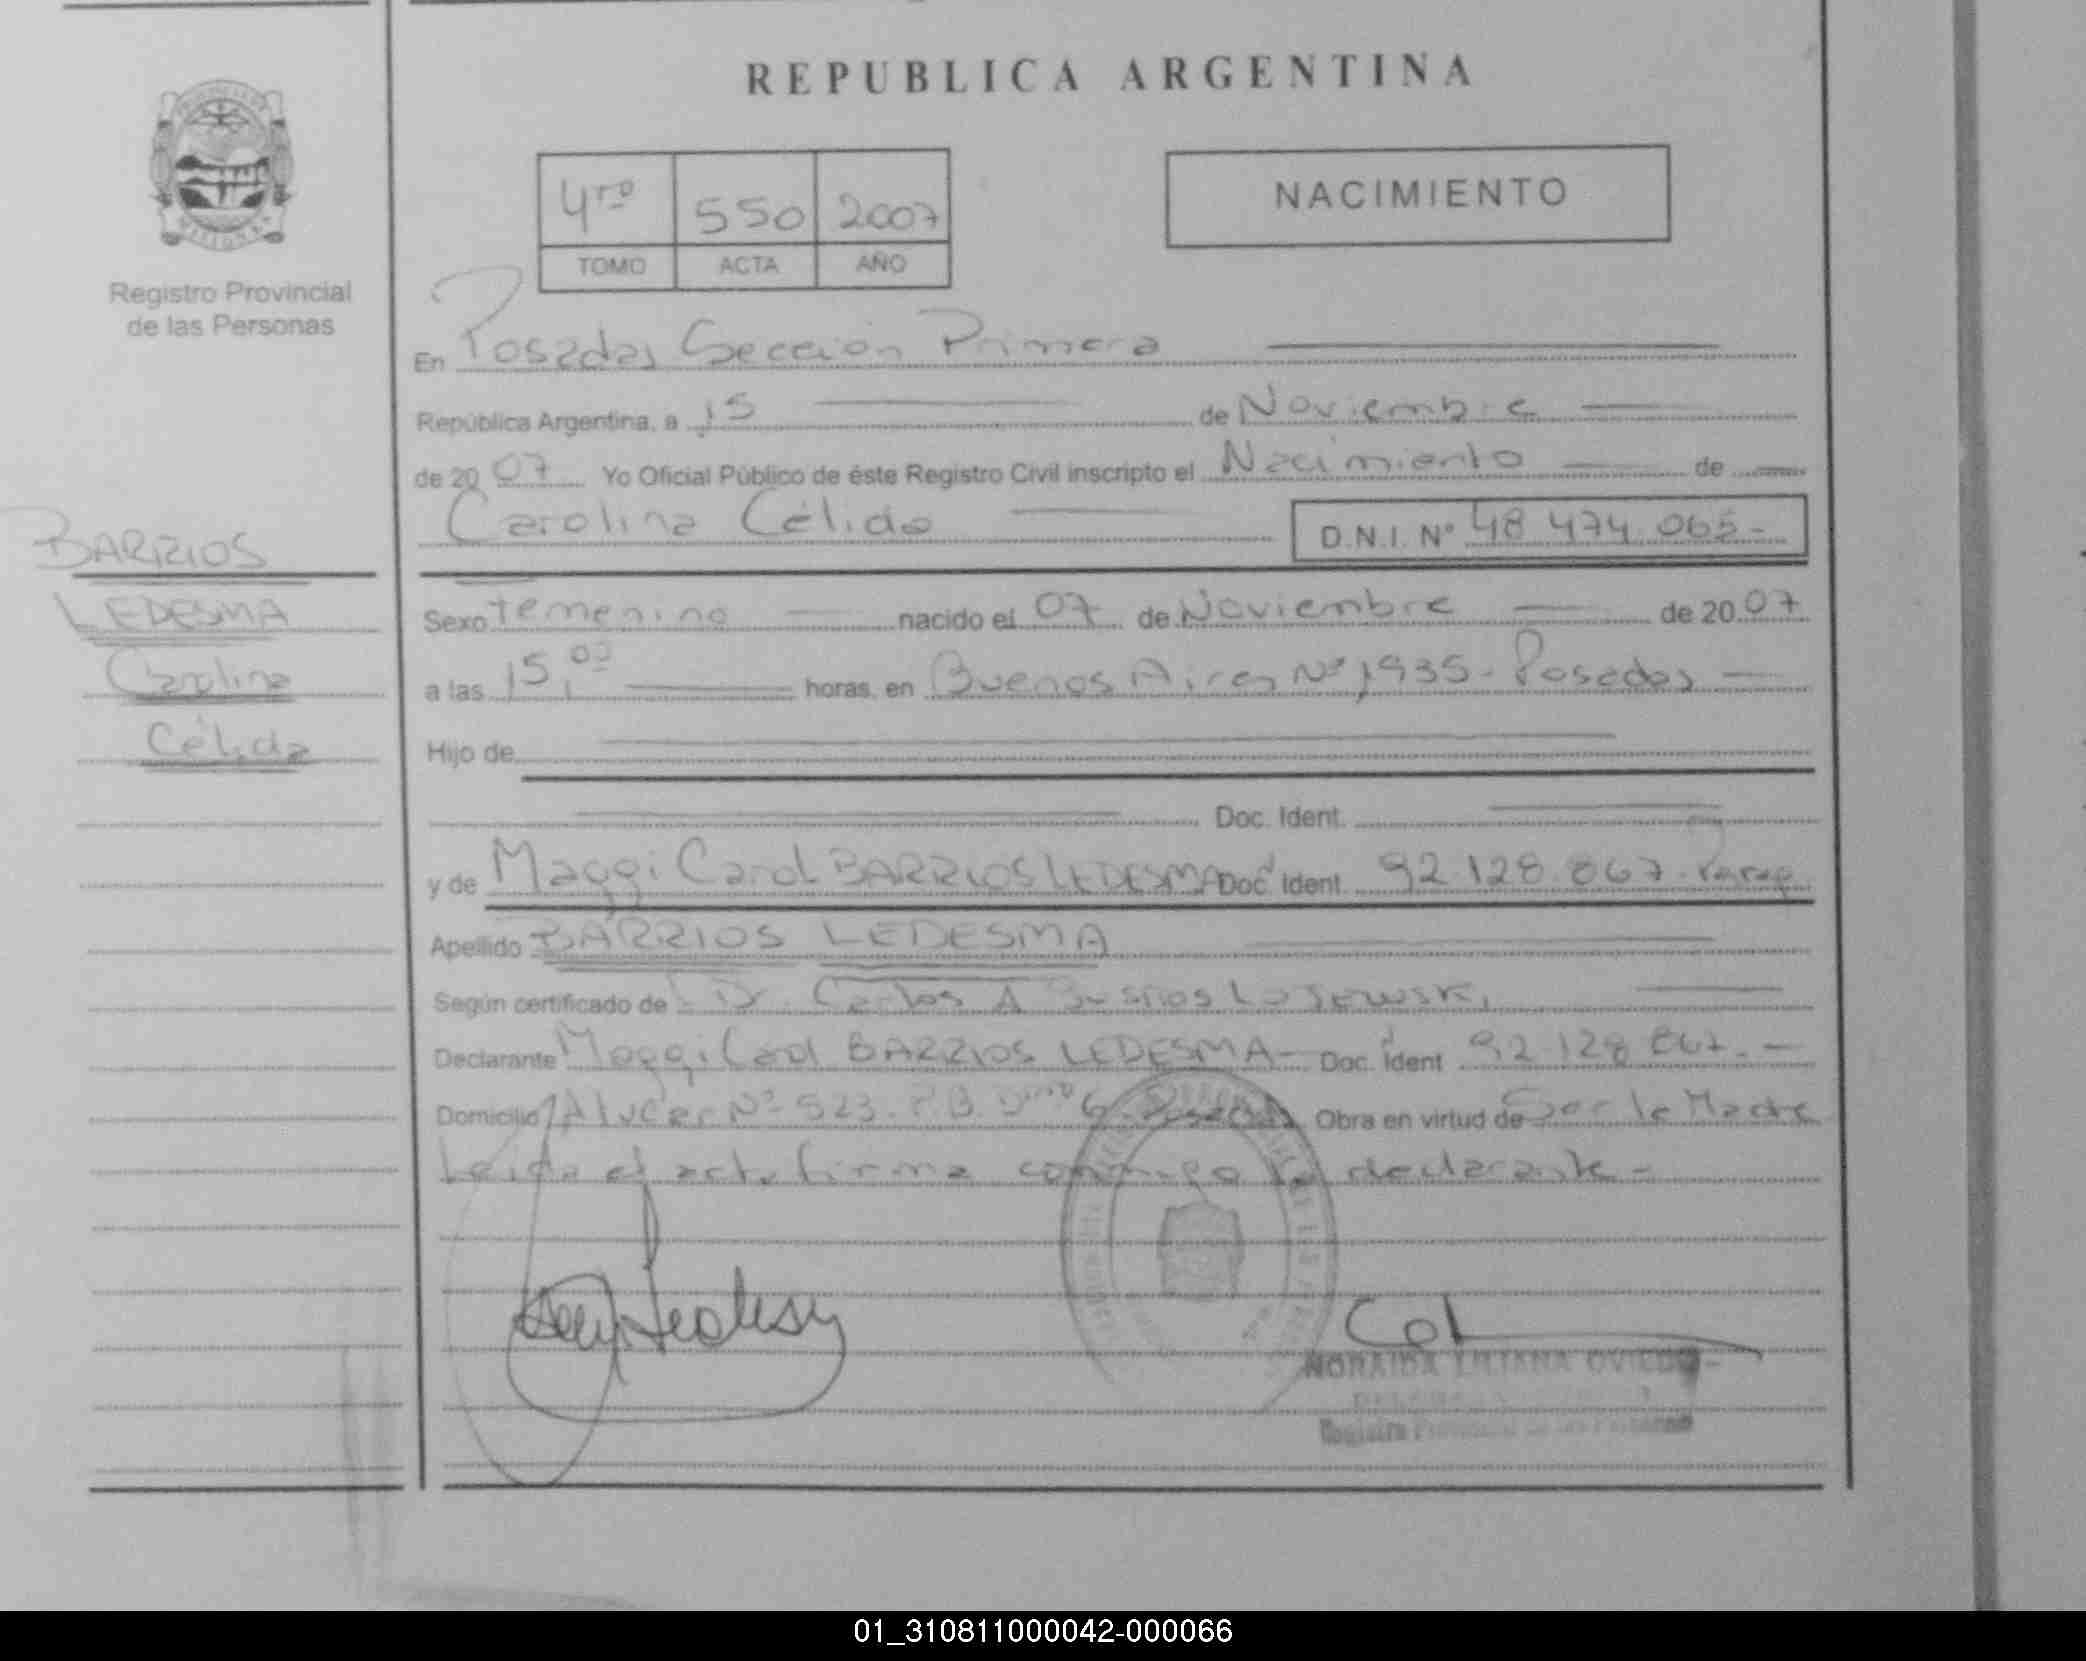 REPUBLICA ARGENTINA
4ro 550 2007
TOMO ACTA AÑO
NACIMIENTO
Registro Provincial
de las Personas
BARRIOS
LEDESMA
Carolina
Célida
En Posadas Sección Primera
República Argentina, a 15 de Noviembre
de 2007 Yo Oficial Público de éste Registro Civil inscripto el Nacimiento de
Carolina Célida D.N.I. Nº 48 474 065-
Sexo Femenino nacido el 07 de Noviembre de 2007
a las 15,00 horas, en Buenos Aires Nº 1935- Posadas
Hijo de
Doc. Ident.
y de Maggi Carol BARRIOS LEDESMA Doc. Ident. 92.128.867. Parag
Apellido BARRIOS LEDESMA
Según certificado de Dr. Carlos A
Declarante Maggi Carol BARRIOS LEDESMA- Doc. Ident 92.128.867.-
Domicilio Nº 523. P.B. 6 Posadas Obra en virtud de Ser la Madre
Leida el acta firma conmigo la declarante-
NORAIDA LILIANA OVIEDO
Registro Provincial de las Personas
01_310811000042-000066